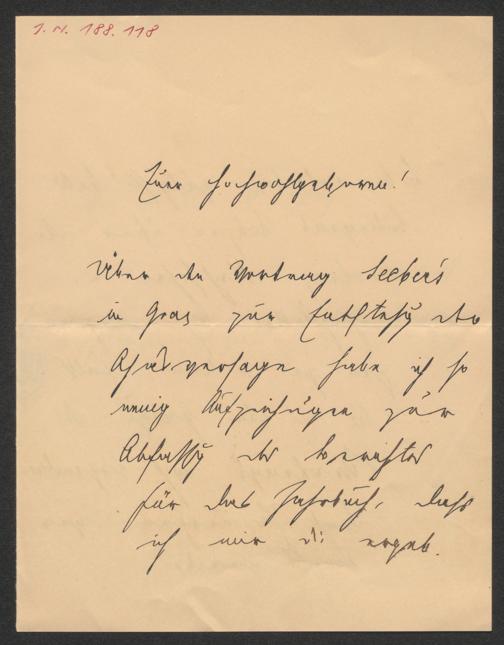 J. N. 188.118
Euer Hochwohlgeboren!
Über den Vortrag Seeber's
in Graz zur Entstehg der
Ahasversage habe ich so
wenig Aufzeichnungen zur
Abfassg des Berichtes
für das Jahrbuch, dass
ich mir die ergeb.